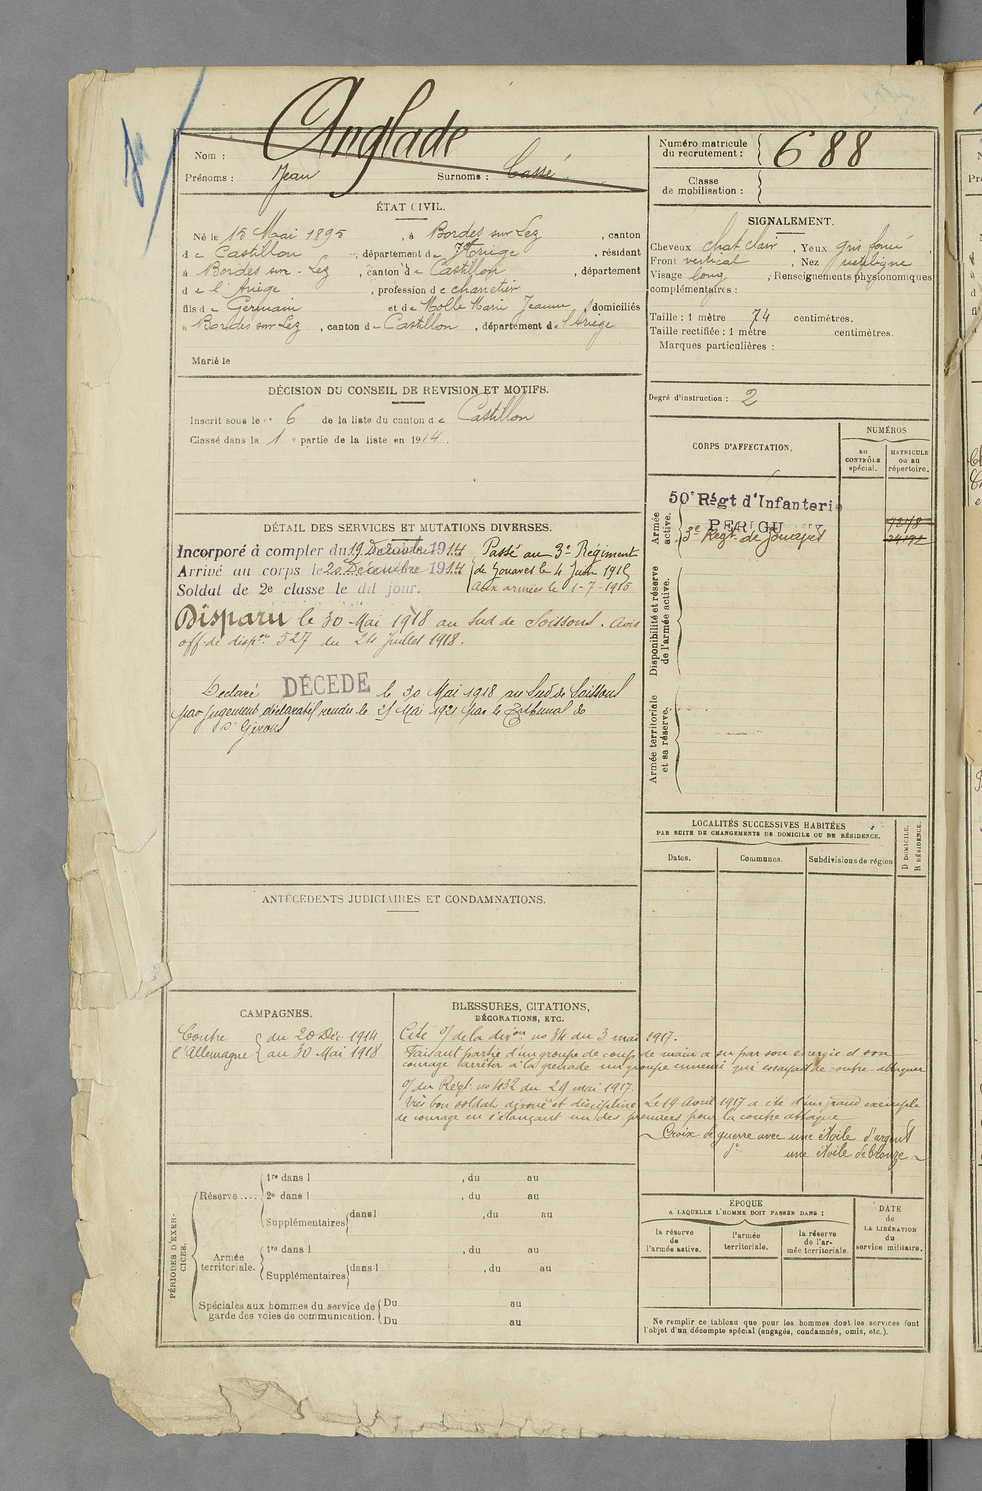 Nom : Anglade
Prénoms : Jean Surnoms : Cassé.
Numéro matricule
du recrutement : 688
Classe
de mobilisation :
ÉTAT CIVIL.
Né le 15 Mai 1895, à Bordes sur Lez, canton
de Castillon, département de l'Ariège, résidant
à Bordes sur-Lez, canton de Castillon, département
de l'Ariège, profession de charretier
fils de Germain et de Molle Marie Jeanne, domiciliés
à Bordes sur Lez, canton de Castillon, département de l'Ariège
Marié le
SIGNALEMENT.
Cheveux chat clair, Yeux gris foncé
Front vertical, Nez rectiligne
Visage long, Renseignements physionomiques
complémentaires :
Taille : 1 mètre 74 centimètres.
Taille rectifiée : 1 mètre centimètres.
Marques particulières :
Degré d'instruction : 2
DÉCISION DU CONSEIL DE REVISION ET MOTIFS.
Inscrit sous le n° 6 de la liste du canton de Castillon
Classé dans la 1e partie de la liste en 1914.
CORPS D'AFFECTATION.
NUMÉROS
au
CONTRÔLE
spécial.
MATRICULE
ou au
répertoire.
Armée
active.
50e Régt d'Infanterie
3e Régt de Zouaves
Disponibilité et réserve
de l'armée active.
Armée territoriale
et sa réserve.
DÉTAIL DES SERVICES ET MUTATIONS DIVERSES.
Incorporé à compter du 19 Décembre 1914 Passé au 3e Régiment
Arrivé au corps le 20 Décembre 1914 de Zouaves le 4 Juin 1915
Soldat de 2e classe le dit jour. aux armées le 1-7-1915
Disparu le 30 Mai 1918 au sud de Soissons. Avis
off. de dispon 527 du 24 Juillet 1918.
Déclaré DÉCÉDÉ le 30 Mai 1918 au Sud de Soissons
par jugement déclaratif rendu le 25 Mai 1921 par le Tribunal de
St Girons
LOCALITÉS SUCCESSIVES HABITÉES
PAR SUITE DE CHANGEMENTS DE DOMICILE OU DE RÉSIDENCE.
Dates. Communes. Subdivisions de région
D DOMICILE.
R RÉSIDENCE.
ANTÉCÉDENTS JUDICIAIRES ET CONDAMNATIONS.
CAMPAGNES.
Contre
l'Allemagne
du 20 Déc. 1914
au 30 Mai 1918
BLESSURES, CITATIONS,
DÉCORATIONS, ETC.
Cité O/ de la divon no 34 du 3 mai 1917.
Faisant partie d'un groupe de coup de main a su par son énergie et son
courage arrêter à la grenade un groupe ennemi qui essayait de contre-attaquer
O/ du Régt. no 432 du 29 mai 1917.
Très bon soldat dévoué et discipliné. Le 14 Avril 1917 a été d'un grand exemple
de courage en s'élançant un des premiers pour la contre attaque
Croix de guerre avec une étoile d'argent
do une étoile de bronze
PÉRIODES D'EXER-
CICES.
Réserve....
1re dans l , du au
2e dans l , du au
Supplémentaires dans l , du au
Armée
territoriale.
1re dans l , du au
Supplémentaires dans l , du au
Spéciales aux hommes du service de
garde des voies de communication.
Du au
Du au
ÉPOQUE
À LAQUELLE L'HOMME DOIT PASSER DANS :
la réserve
de
l'armée active.
l'armée
territoriale.
la réserve
de l'ar-
mée territoriale.
DATE
de
LA LIBÉRATION
du
service militaire.
Ne remplir ce tableau que pour les hommes dont les services font
l'objet d'un décompte spécial (engagés, condamnés, omis, etc.).